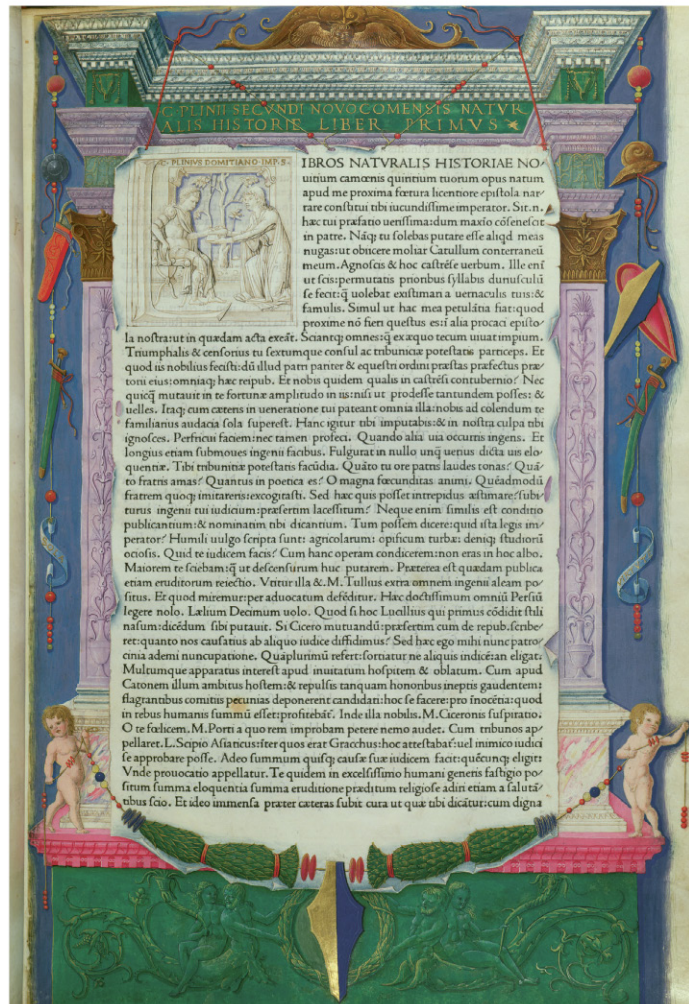 C·PLINII SECVNDI NOVOCOMENSIS NATVR
ALIS HISTORIE LIBER PRIMVS
C·PLINIVS DOMITIANO·IMP·S·
IBROS NATVRALIS HISTORIAE NO/
uitium camœnis quiritium tuorum opus natum
apud me proxima fœtura licentiore epistola nar/
rare constitui tibi iucundissime imperator. Sit.n.
hæc tui præfatio uerissima:dum maxīo cōsenescit
in patre. Nāq; tu solebas putare esse aliqd meas
nugas:ut obiicere moliar Catullum conterraneū
meum. Agnoscis & hoc castrēse uerbum. Ille enī
ut scis:permutatis prioribus syllabis duriusculū
se fecit:q̄ uolebat existimari a uernaculis tuis:&
famulis. Simul ut hac mea petulātia fiat:quod
proxime nō fieri questus es:ī alia procaci episto/
la nostra:ut in quædam acta exeāt. Sciantq; omnes:q̄ ex æquo tecum uiuat impium.
Triumphalis & censorius tu sextumque consul ac tribuniciæ potestatis particeps. Et
quod iis nobilius fecisti:dū illud patri pariter & equestri ordini præstas præfectus præ/
torii eius:omniaq; hæc reipub. Et nobis quidem qualis in castrēsi contubernio? Nec
quicq̄ mutauit in te fortunæ amplitudo in iis:nisi ut prodesse tantundem posses: &
uelles. Itaq; cum cæteris in ueneratione tui pateant omnia illa:nobis ad colendum te
familiarius audacia sola superest. Hanc igitur tibi imputabis:& in nostra culpa tibi
ignosces. Perfricui faciem:nec tamen profeci. Quando alia uia occurris ingens. Et
longius etiam submoues ingenii facibus. Fulgurat in nullo unq̄ uerius dicta uis elo/
quentiæ. Tibi tribunitiæ potestatis facūdia. Quāto tu ore patris laudes tonas? Quā/
to fratris amas? Quantus in poetica es? O magna fœcunditas animi. Quēadmodū
fratrem quoq; imitareris:excogitasti. Sed hæc quis posset intrepidus æstimare?subi/
turus ingenii tui iudicium:præsertim lacessitum? Neque enim similis est conditio
publicantium:& nominatim tibi dicantium. Tum possem dicere:quid ista legis im/
perator? Humili uulgo scripta sunt: agricolarum: opificum turbæ: deniq; studiorū
ociosis. Quid te iudicem facis? Cum hanc operam condicerem:non eras in hoc albo.
Maiorem te sciebam:q̄ ut descensurum huc putarem. Præterea est quædam publica
etiam eruditorum reiectio. Vtitur illa &.M. Tullius extra omnem ingenii aleam po/
situs. Et quod miremur:per aduocatum defēditur. Hæc doctissimum omniū Persiū
legere nolo. Lælium Decimum uolo. Quod si hoc Lucillius qui primus cōdidit stili
nasum:dicēdum sibi putauit. Si Cicero mutuandū:præsertim cum de repub.scribe/
ret:quanto nos causatius ab aliquo iudice diffidimus? Sed hæc ego mihi nunc patro/
cinia ademi nuncupatione. Quāplurimū refert:sortiatur ne aliquis indicē:an eligat.
Multumque apparatus interest apud inuitatum hospitem & oblatum. Cum apud
Catonem illum ambitus hostem:& repulsis tanquam honoribus ineptis gaudentem:
flagrantibus comitiis pecunias deponerent candidati:hoc se facere:pro īnocētia:quod
in rebus humanis summū esset:profitebāt. Inde illa nobilis.M.Ciceronis suspiratio.
O te fœlicem.M.Porti a quo rem improbam petere nemo audet. Cum tribunos ap/
pellaret.L.Scipio Asiaticus:īter quos erat Gracchus:hoc attestabat:uel inimico iudici
se approbare posse. Adeo summum quisq; causæ suæ iudicem facit:quēcunq; eligit:
Vnde prouocatio appellatur. Te quidem in excelsissimo humani generis fastigio po/
situm summa eloquentia summa eruditione præditum religiose adiri etiam a salutā/
tibus scio. Et ideo immensa præter cæteras subit cura ut quæ tibi dicātur:cum digna